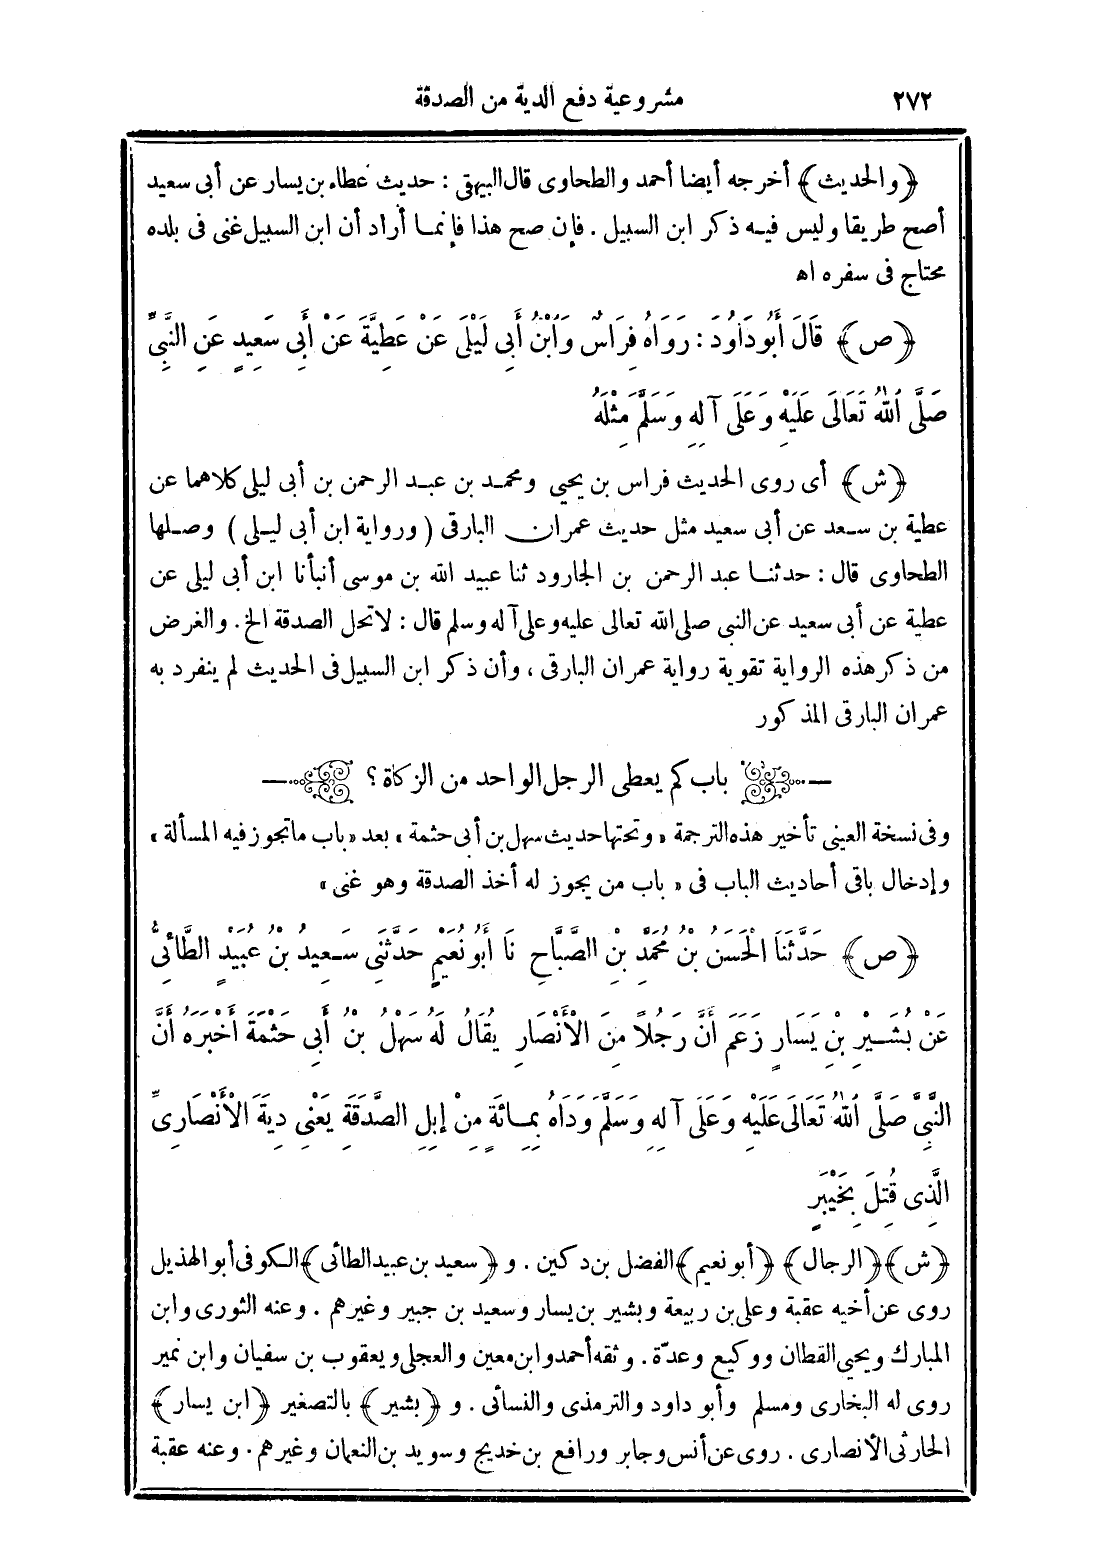 ٢٧٢ مشروعية دفع الدية من الصدقة
﴿والحديث﴾ أخرجه أيضا أحمد والطحاوى قال البيهقى : حديث عطاء بن يسار عن أبى سعيد
أصح طريقا وليس فيه ذكر ابن السبيل . فإن صح هذا فإنما أراد أن ابن السبيل غنى فى بلده
محتاج فى سفره اه
﴿ص﴾ قَالَ أَبُودَاوُدَ : رَوَاهُ فِرَاسٌ وَابْنُ أَبِى لَيْلَى عَنْ عَطِيَّةَ عَنْ أَبِى سَعِيدٍ عَنِ النَّبِىِّ
صَلَّى اللهُ تَعَالَى عَلَيْهِ وَعَلَى آلِهِ وَسَلَّمَ مِثْلَهُ
﴿ش﴾ أى روى الحديث فراس بن يحيى ومحمد بن عبد الرحمن بن أبى ليلى كلاهما عن
عطية بن سعد عن أبى سعيد مثل حديث عمران البارقى ( ورواية ابن أبى ليلى ) وصلها
الطحاوى قال : حدثنا عبد الرحمن بن الجارود ثنا عبيد الله بن موسى أنبأنا ابن أبى ليلى عن
عطية عن أبى سعيد عن النبى صلى الله تعالى عليه وعلى آله وسلم قال : لاتحل الصدقة الخ . والغرض
من ذكر هذه الرواية تقوية رواية عمران البارقى ، وأن ذكر ابن السبيل فى الحديث لم ينفرد به
عمران البارقى المذكور
باب كم يعطى الرجل الواحد من الزكاة ؟
وفى نسخة العينى تأخير هذه الترجمة « وتحتها حديث سهل بن أبى حثمة » بعد « باب ماتجوز فيه المسألة »
وإدخال باقى أحاديث الباب فى « باب من يجوز له أخذ الصدقة وهو غنى »
﴿ص﴾ حَدَّثَنَا الْحَسَنُ بْنُ مُحَمَّدِ بْنِ الصَّبَّاحِ نَا أَبُو نُعَيْمٍ حَدَّثَنِى سَعِيدُ بْنُ عُبَيْدٍ الطَّائِىُّ
عَنْ بُشَيْرِ بْنِ يَسَارٍ زَعَمَ أَنَّ رَجُلًا مِنَ الْأَنْصَارِ يُقَالُ لَهُ سَهْلُ بْنُ أَبِى حَثْمَةَ أَخْبَرَهُ أَنَّ
النَّبِىَّ صَلَّى اللهُ تَعَالَى عَلَيْهِ وَعَلَى آلِهِ وَسَلَّمَ وَدَاهُ بِمِائَةٍ مِنْ إِبِلِ الصَّدَقَةِ يَعْنِى دِيَةَ الْأَنْصَارِىِّ
الَّذِى قُتِلَ بِخَيْبَرَ
﴿ش﴾ ﴿الرجال﴾ ﴿أبو نعيم﴾ الفضل بن دكين . و ﴿سعيد بن عبيد الطائى﴾ الكوفى أبو الهذيل
روى عن أخيه عقبة وعلى بن ربيعة وبشير بن يسار وسعيد بن جبير وغيرهم . وعنه الثورى وابن
المبارك ويحيى القطان ووكيع وعدّة . وثقه أحمد وابن معين والعجلى ويعقوب بن سفيان وابن نمير
روى له البخارى ومسلم وأبو داود والترمذى والنسائى . و ﴿بشير﴾ بالتصغير ﴿ابن يسار﴾
الحارثى الأنصارى . روى عن أنس وجابر ورافع بن خديج وسويد بن النعمان وغيرهم . وعنه عقبة